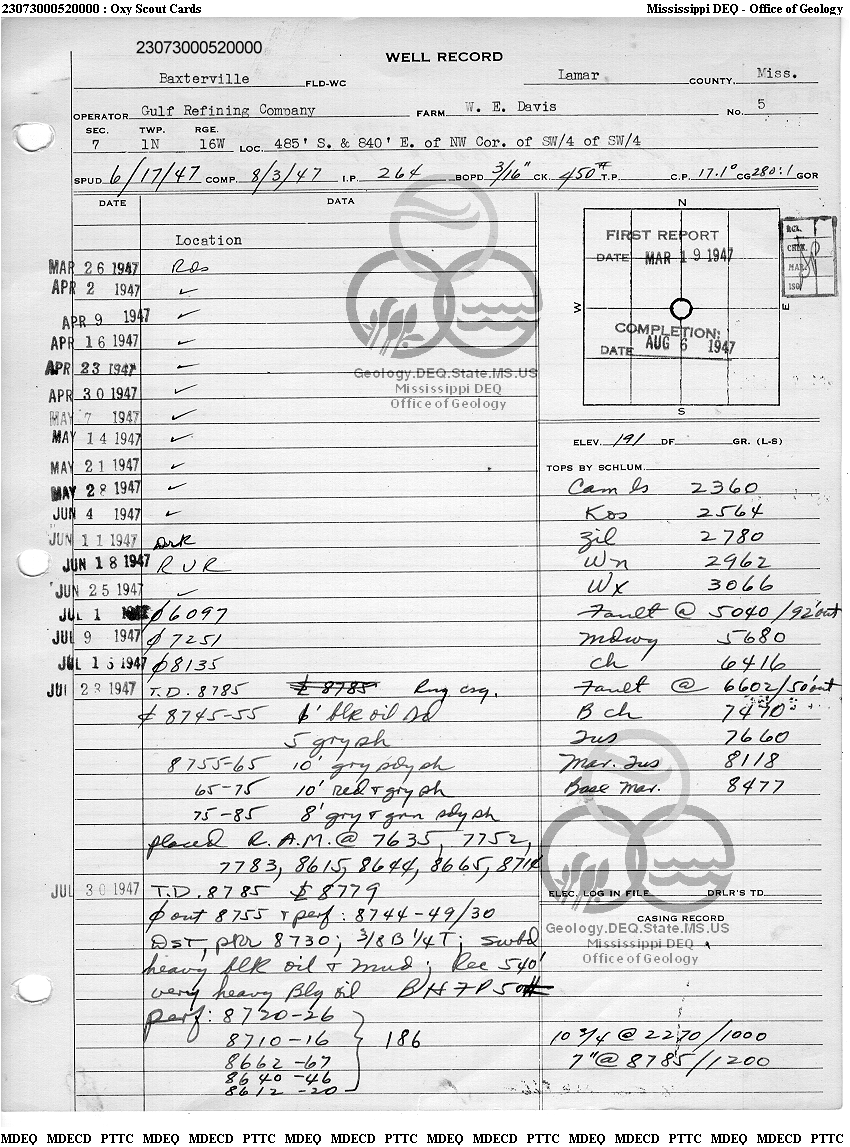 23073000520000 : Oxy Scout Cards Mississippi DEQ - Office of Geology
23073000520000
WELL RECORD
Baxterville FLD-WC Lamar COUNTY, Miss.
OPERATOR Gulf Refining Company FARM W. E. Davis No. 5
SEC. TWP. RGE.
7 1N 16W LOC. 485' S. & 840' E. of NW Cor. of SW/4 of SW/4
SPUD 6/17/47 COMP. 8/3/47 I.P. 264 BOPD 3/16" CK. 450# T.P. C.P. 17.1° CG 280:1 GOR
DATE DATA
Location
MAR 26 1947 Rds
APR 2 1947 ✓
APR 9 1947 ✓
APR 16 1947 ✓
APR 23 1947 ✓
APR 30 1947 ✓
MAY 7 1947 ✓
MAY 14 1947 ✓
MAY 21 1947 ✓
MAY 28 1947 ✓
JUN 4 1947 ✓
JUN 11 1947 Drk
JUN 18 1947 R U R
JUN 25 1947 ✓
JUL 1 ∅6097
JUL 9 1947 ∅7251
JUL 16 1947 ∅8135
JUL 23 1947 T.D. 8785 Rng csg.
₵ 8745-55 6' blk oil sd
5 gry sh
8755-65 10' gry sdy sh
65-75 10' red & gry sh
75-85 8' gry & grn sdy sh
placed R.A.M. @ 7635, 7752,
7783, 8615, 8644, 8665, 8714
JUL 30 1947 T.D. 8785 ₵ 8779
∅ out 8755 & perf: 8744-49/30
DST, pkr 8730; 3/8 B 1/4 T; swbd
heavy blk oil & mud; Rec 540'
very heavy Blk oil BHFP 50#
perf: 8720-26
8710-16
8662-67
8640-46
8612-20
186
N
W
E
S
FIRST REPORT
DATE MAR 19 1947
COMPLETION:
DATE AUG 6 1947
RCK.
CHEK.
MAR.
ISO
ELEV. 191 DF. GR. (L-S)
TOPS BY SCHLUM.
Cam ls 2360
Kos 2564
Zil 2780
Wn 2962
Wx 3066
Fault @ 5040/92' out
Mdwy 5680
Ch 6416
Fault @ 6602/50' out
B ch 7470
Tus 7660
Mar. Tus 8118
Base Mar. 8477
ELEC. LOG IN FILE DRLR'S TD
CASING RECORD
10 3/4 @ 2270/1000
7" @ 8785/1200
Geology.DEQ.State.MS.US
Mississippi DEQ
Office of Geology
Geology.DEQ.State.MS.US
Mississippi DEQ
Office of Geology
MDEQ MDECD PTTC MDEQ MDECD PTTC MDEQ MDECD PTTC MDEQ MDECD PTTC MDEQ MDECD PTTC MDEQ MDECD PTTC